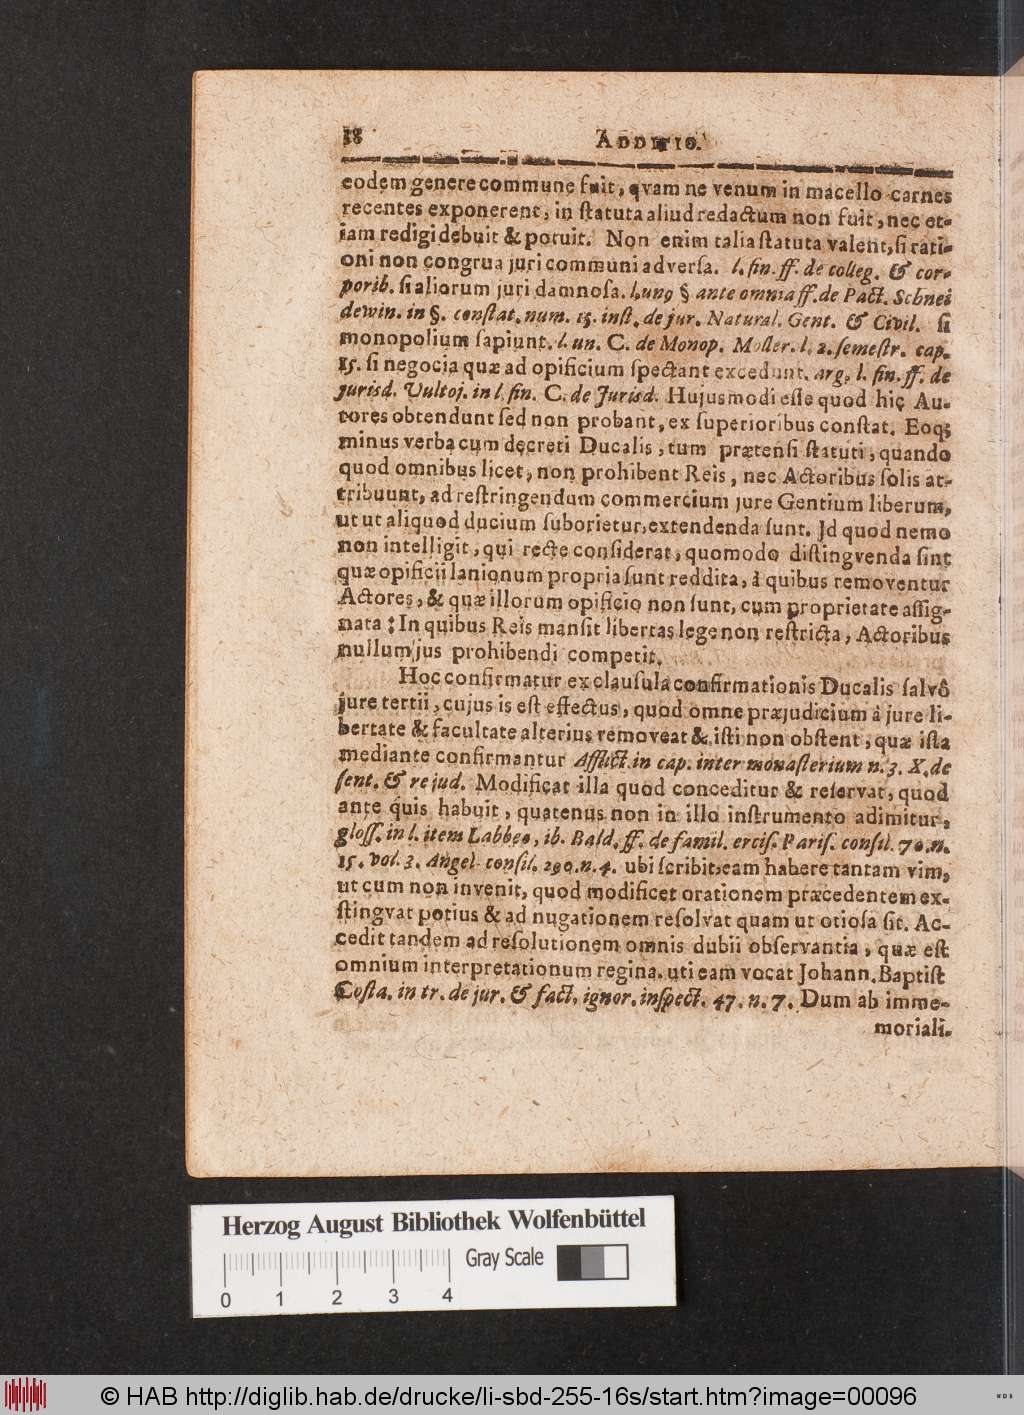 18 ADDITIO.
eodem genere commune fuit, qvam ne venum in macello carnes
recentes exponerent, in ſtatuta aliud redactum non fuit, nec et-
iam redigi debuit & potuit. Non enim talia ſtatuta valent, ſi rati-
oni non congrua juri communi adverſa. l. fin. ff. de colleg. & cor-
porib. ſi aliorum juri damnoſa. l. un9 § ante omnia ff. de Pact. Schnei
dewin. in §. conſtat. num. 15. inſt. de jur. Natural. Gent. & Civil. ſi
monopolium ſapiunt. l. un. C. de Monop. Moller. l. 2. ſemeſtr. cap.
15. ſi negocia quæ ad opificium ſpectant excedunt. arg. l. fin. ff. de
jurisd. Vultoj. in l. fin. C. de Jurisd. Hujusmodi eſſe quod hic Au-
tores obtendunt ſed non probant, ex ſuperioribus conſtat. Eoq;
minus verba cum decreti Ducalis, tum prætenſi ſtatuti, quando
quod omnibus licet, non prohibent Reis, nec Actoribus ſolis at-
tribuunt, ad reſtringendum commercium jure Gentium liberum,
ut ut aliquod ducium ſuborietur, extendenda ſunt. Jd quod nemo
non intelligit, qui recte conſiderat, quomodo diſtingvenda ſint
quæ opificii lanionum propria ſunt reddita, à quibus removentur
Actores, & quæ illorum opificio non ſunt, cum proprietate aſſig-
nata: In quibus Reis manſit libertas lege non reſtricta, Actoribus
nullum jus prohibendi competit.
Hoc confirmatur ex clauſula confirmationis Ducalis ſalvô
jure tertii, cujus is eſt effectus, quod omne præjudicium à jure li-
bertate & facultate alterius removeat & iſti non obſtent, quæ iſta
mediante confirmantur Afflict. in cap. inter monaſterium n. 3. X. de
ſent. & re jud. Modificat illa quod conceditur & reſervat, quod
ante quis habuit, quatenus non in illo inſtrumento adimitur,
gloſſ. in l. item Labbeo, ib. Bald. ff. de famil. erciſ. Pariſ. conſil. 70. n.
15. vol. 3. Angel. conſil. 290. n. 4. ubi ſcribit, eam habere tantam vim,
ut cum non invenit, quod modificet orationem præcedentem ex-
ſtingvat potius & ad nugationem reſolvat quam ut otioſa ſit. Ac-
cedit tandem ad reſolutionem omnis dubii obſervantia, quæ eſt
omnium interpretationum regina, uti eam vocat Johann. Baptiſt
Coſta. in tr. de jur. & fact. ignor. inſpect. 47. n. 7. Dum ab imme-
moriali-
Herzog August Bibliothek Wolfenbüttel
Gray Scale
0 1 2 3 4
© HAB http://diglib.hab.de/drucke/li-sbd-255-16s/start.htm?image=00096
WDB